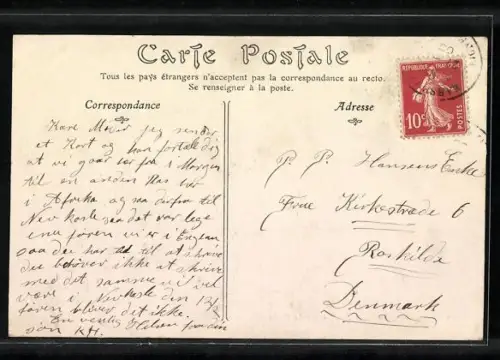 Carte Postale
Tous les pays étrangers n'acceptent pas la correspondance au recto.
Se renseigner à la poste.
Correspondance
Adresse
REPUBLIQUE FRANÇAISE
10c
POSTES
Kære Moder jeg sender
et Kort og kan fortælle dig
at vi gaar her fra i Morgen
til en anden Plas her
i Afrika og saa derfra til
New
saa det
før en vi er i England
saa du har til at skrive
du behøver ikke at skrive
med det samme vi vil
være i den
føren bliver det ikke.
En venlig Hilsen fra din
søn
P. P. Hansens Enke
Frue Kirkestræde 6
Roskilde
Denmark